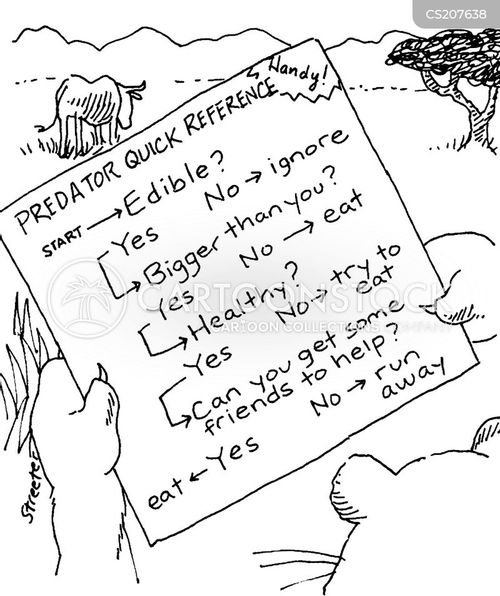 CS207638
Handy!
PREDATOR QUICK REFERENCE
START → Edible?
Yes No → ignore
Bigger than you?
Yes No → eat
Healthy?
Yes No → try to
eat
Can you get some
friends to help?
eat ← Yes No → run
away
CARTOONSTOCK
CARTOON COLLECTIONS COMPANY
Streeter